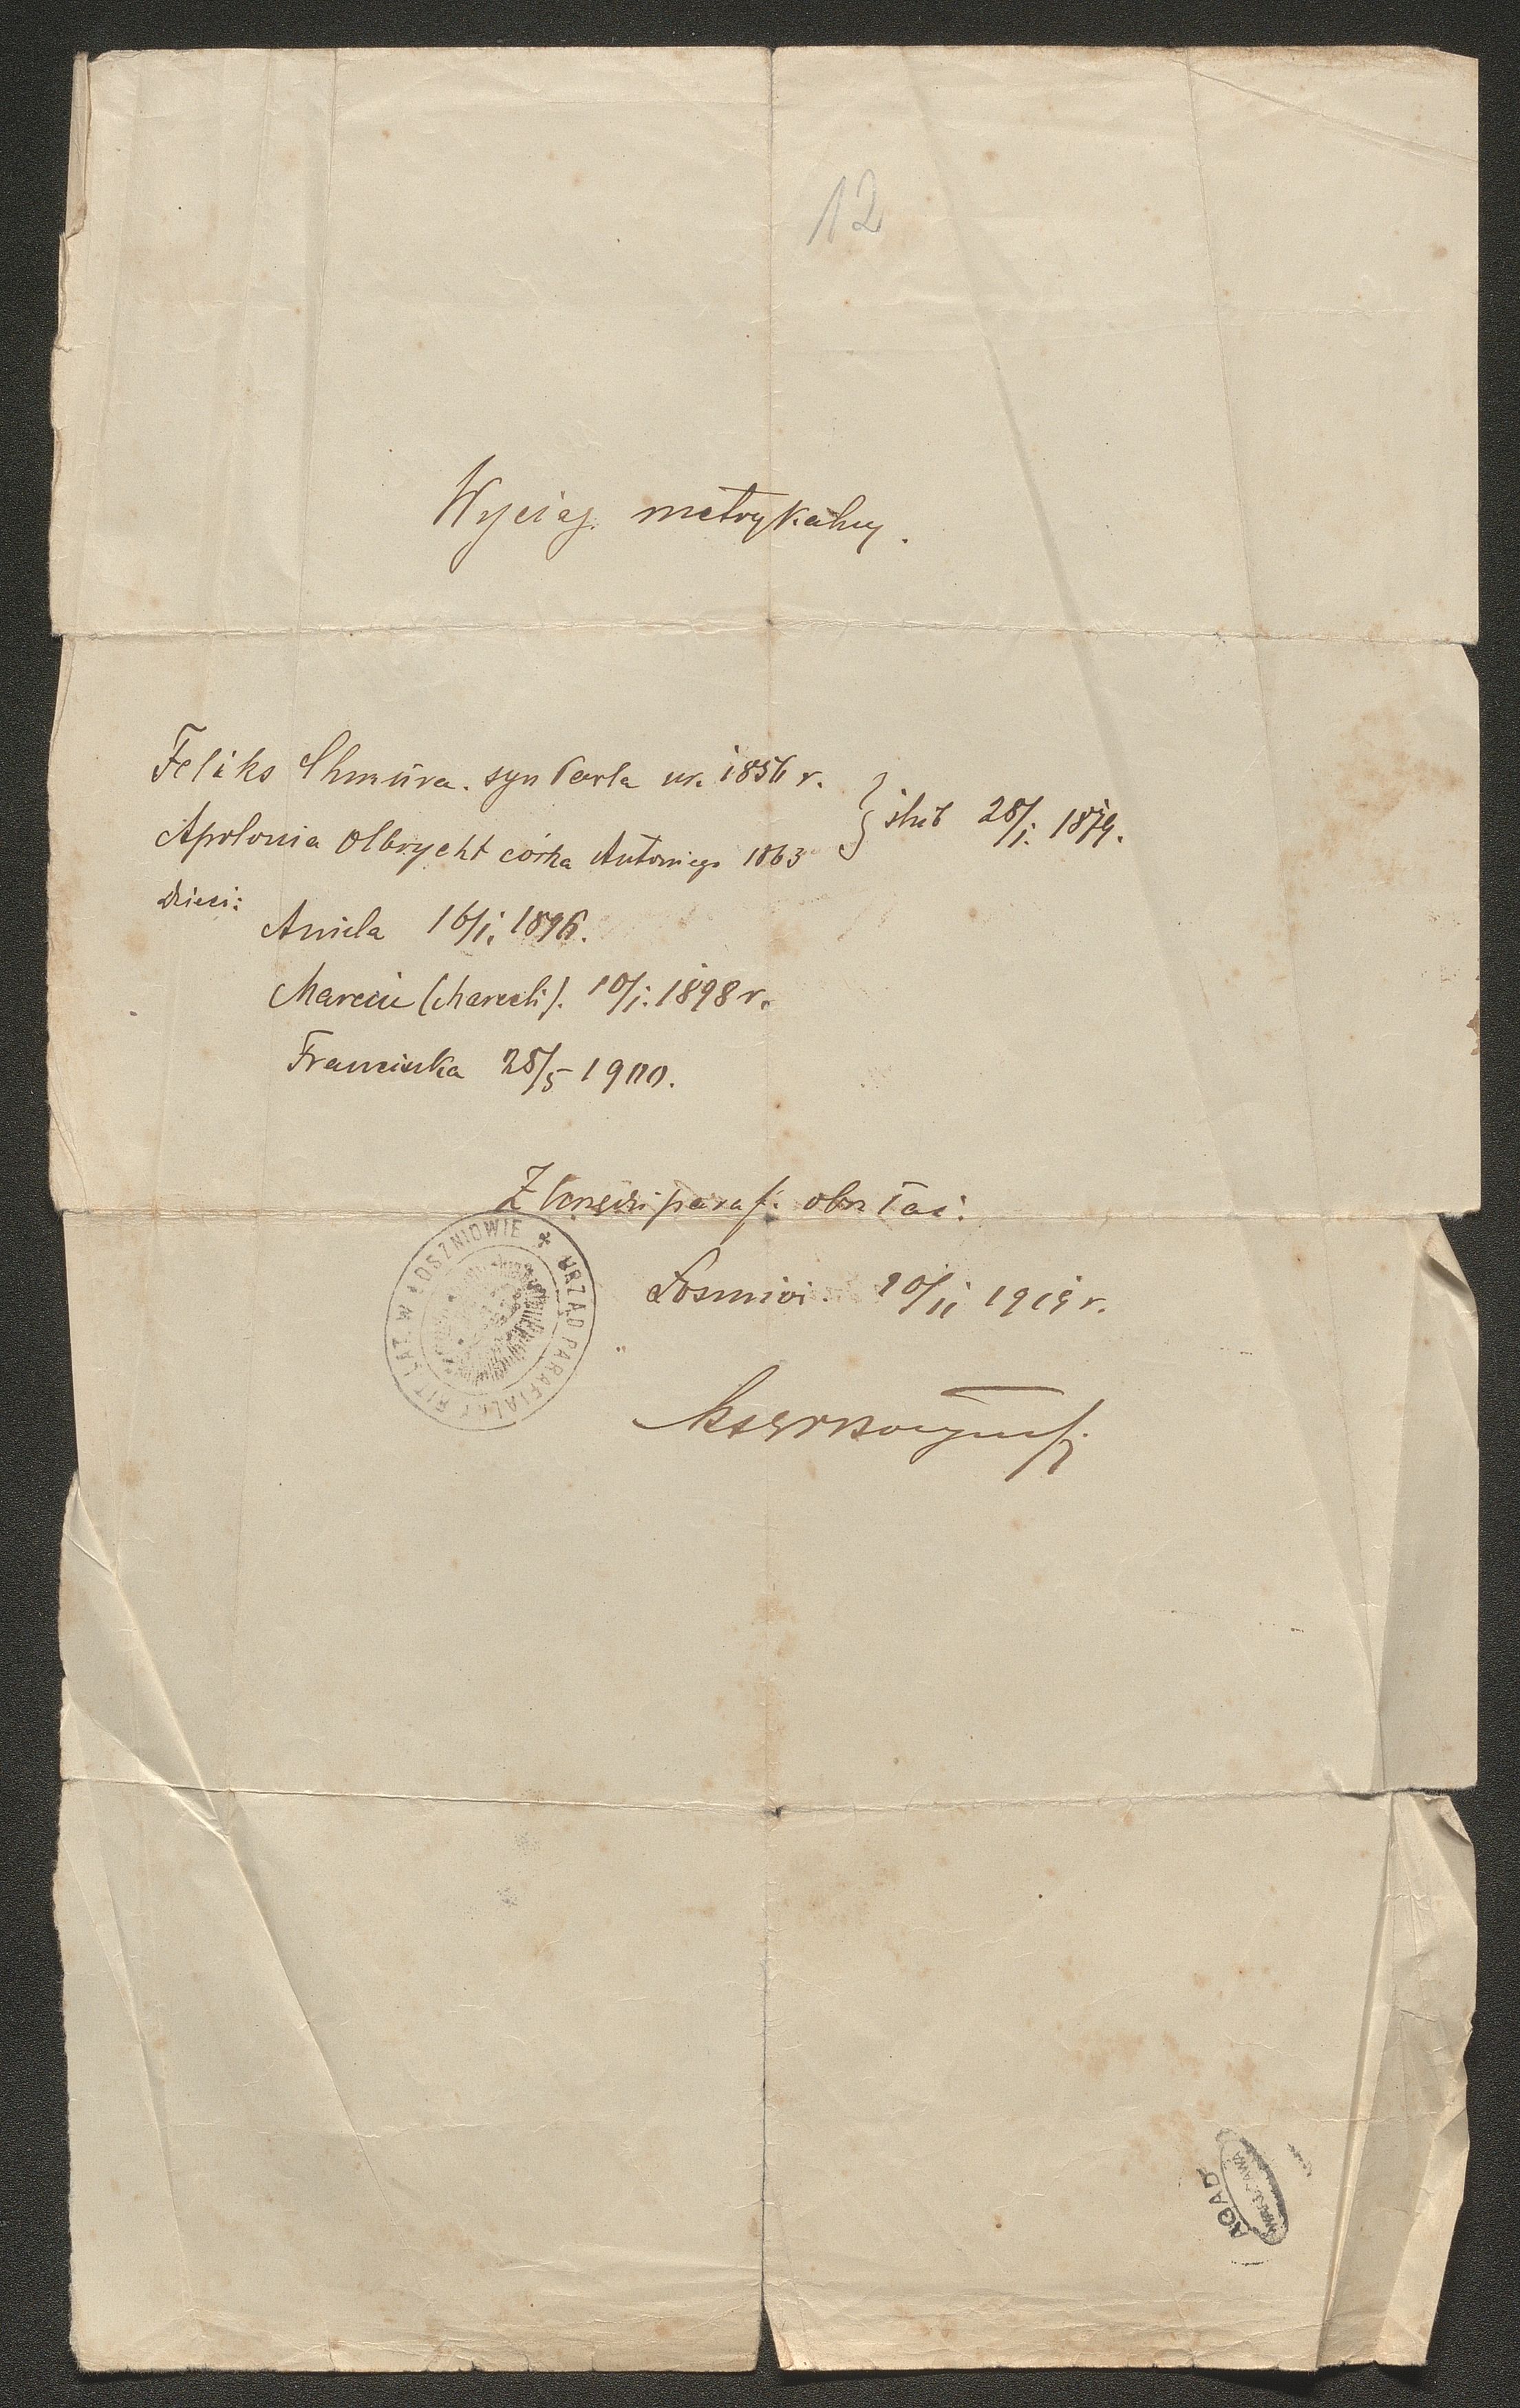 12
Wyciąg metrykalny.
Feliks Chmura. syn Karla ur. 1856 r.
Apolonia Olbrycht córka Antoniego 1863
} ślub 28/I. 1879.
dzieci:
Aniela 16/I. 1896.
Marcin (Marceli). 10/I. 1898 r.
Franciszka 25/5 1900.
Z Urzędu paraf. obrz łać.
Łoszniów 20/II 1919 r.
URZĄD PARAFIALNY RIT. ŁAT. W ŁOSZNIOWIE *
AGAD
WARSZAWA